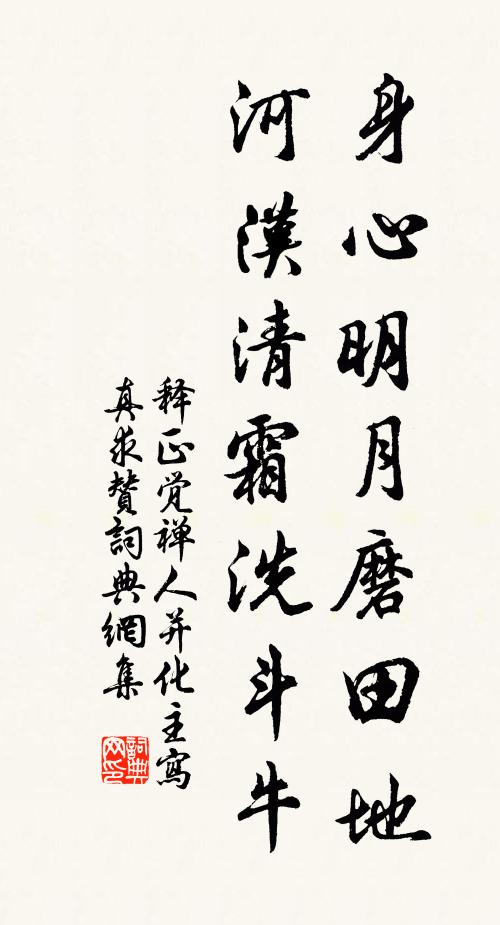 身心明月磨田地
河漢清霜洗斗牛
释正觉禅人并化主寫
真求賛詞典網集
詞典網印